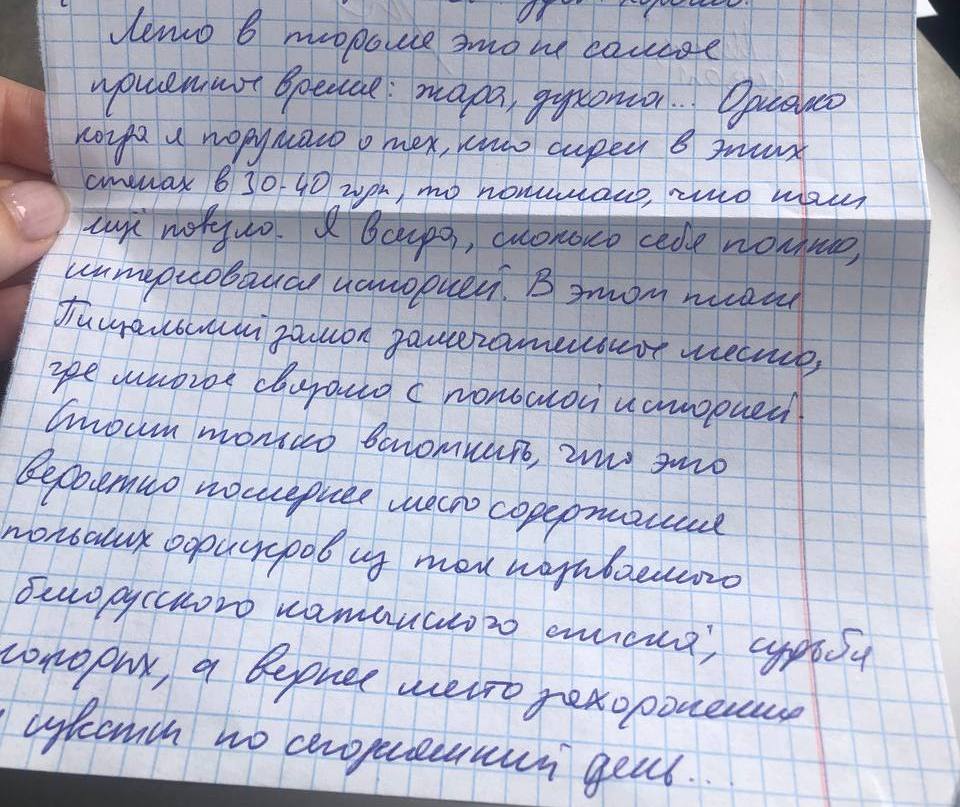 хорошо.
Лето в тюрьме это не самое
приятное время: жара, духота... Однако
когда я подумаю о тех, кто сидел в этих
стенах в 30-40 годы, то понимаю, что нам
ещё повезло. Я всегда, сколько себя помню,
интересовался историей. В этом плане
Пищаловский замок замечательное место,
где многое связано с польской историей.
Стоит только вспомнить, что это
вероятно последнее место содержания
польских офицеров из так называемого
белорусского катынского списка, судьба
которых, а вернее место захоронения
по сегодняшний день...